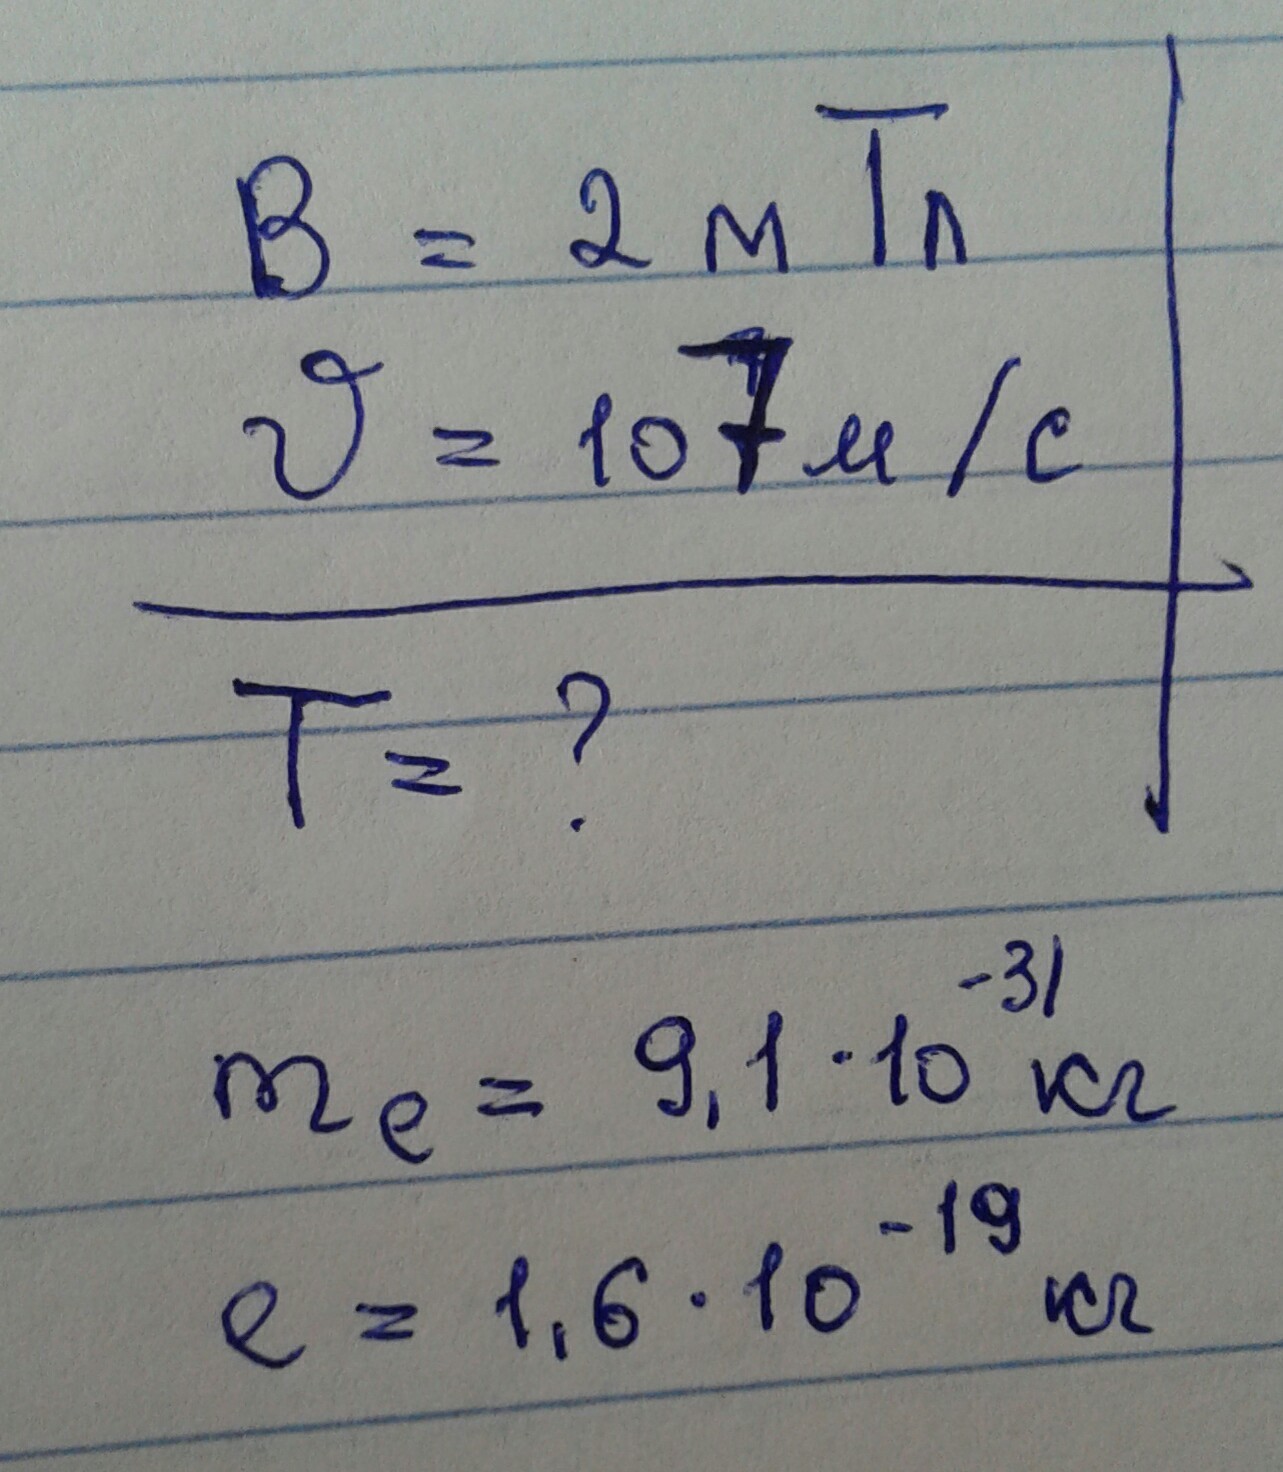 B = 2 мТл
υ = 10⁷ м/с
T = ?
mₑ = 9,1 · 10⁻³¹ кг
e = 1,6 · 10⁻¹⁹ кг